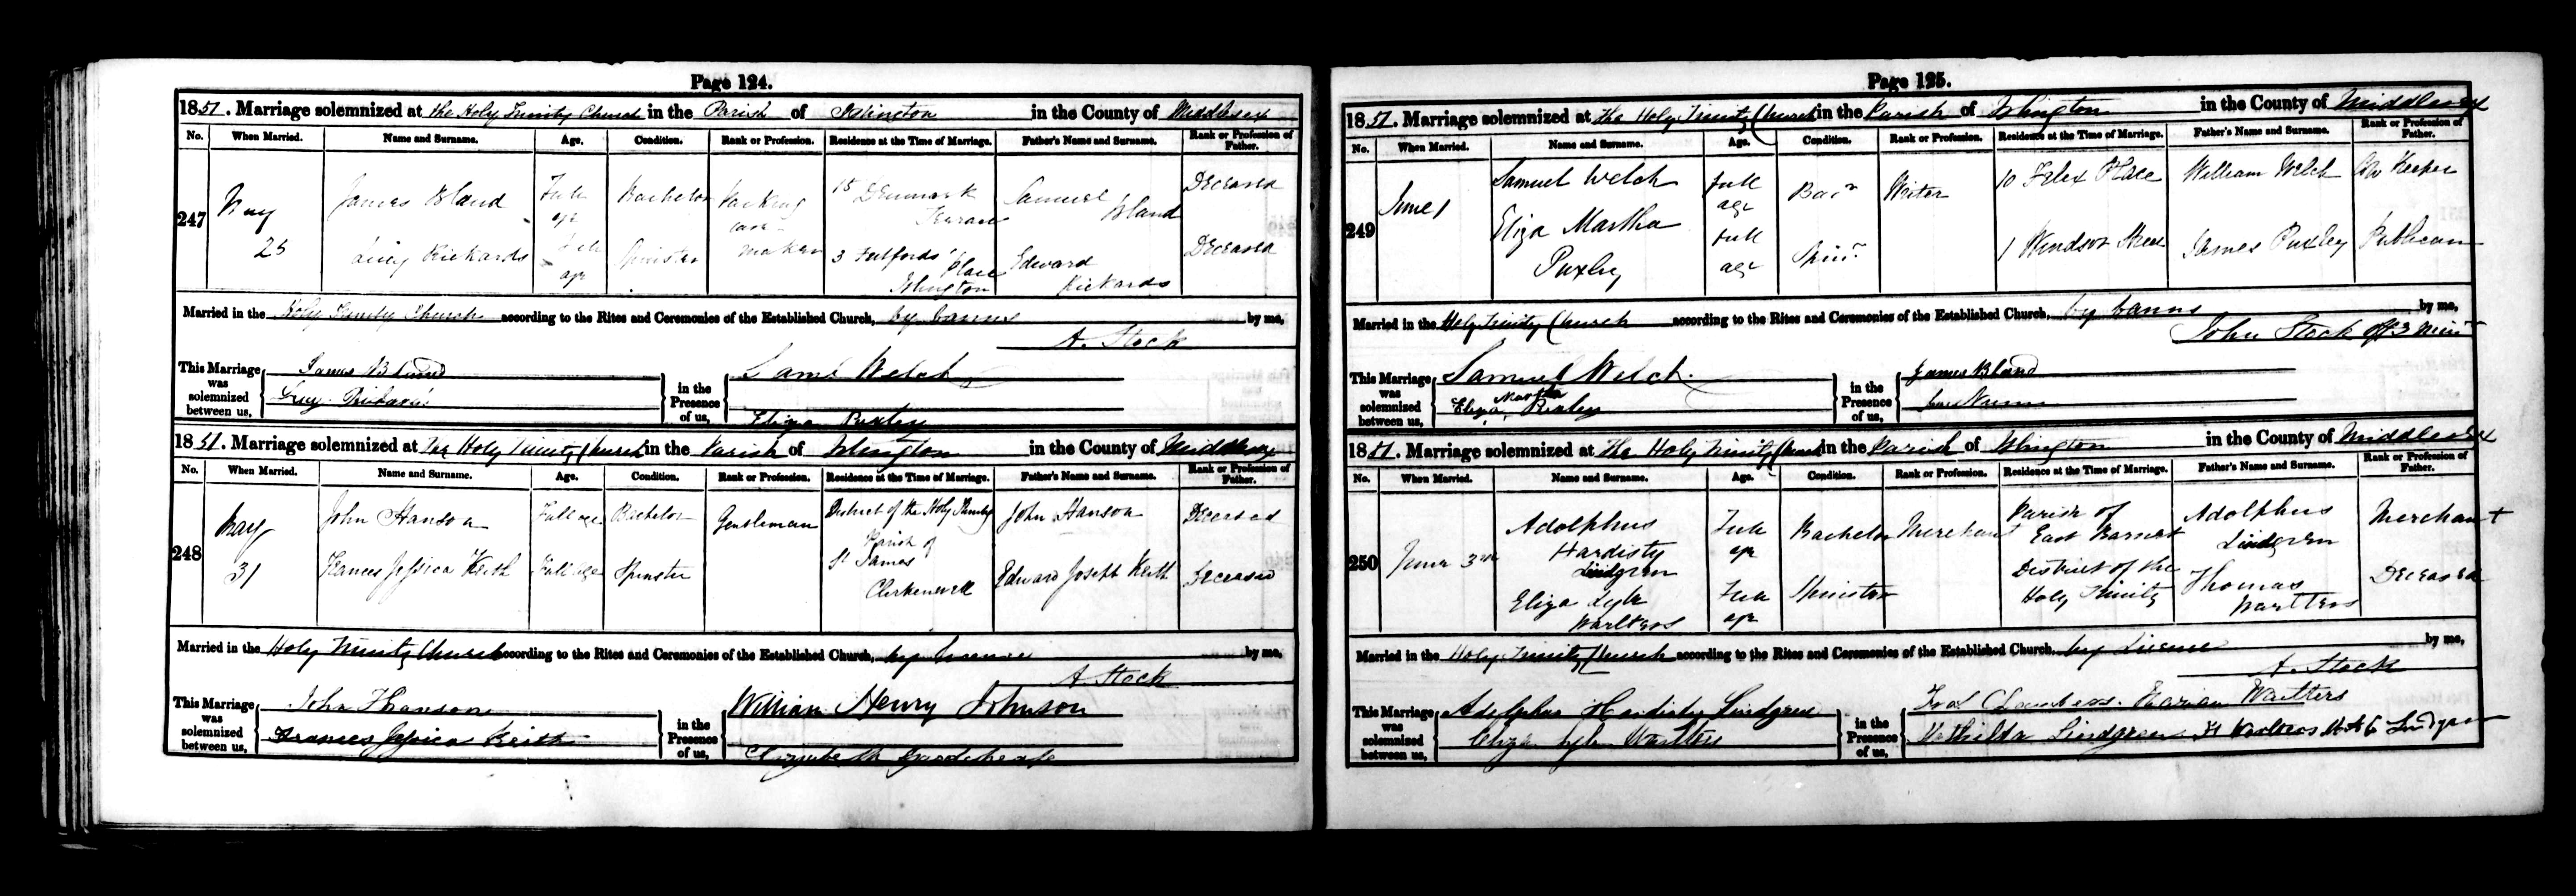 Page 124.
1851. Marriage solemnized at the Holy Trinity Church in the Parish of Islington in the County of Middlesex
No. When Married. Name and Surname. Age. Condition. Rank or Profession. Residence at the Time of Marriage. Father's Name and Surname. Rank or Profession of Father.
247 May 25 James Bland Full age Bachelor Packing case maker 15 Denmark Terrace Samuel Bland Deceased
Lucy Rickards Full age Spinster 3 Fulfords Place Islington Edward Rickards Deceased
Married in the Holy Trinity Church according to the Rites and Ceremonies of the Established Church, by banns by me,
A. Stock
This Marriage was solemnized between us, James Bland
Lucy Rickards
in the Presence of us, Saml Welch
Eliza Puxley
1851. Marriage solemnized at The Holy Trinity Church in the Parish of Islington in the County of Middlesex
No. When Married. Name and Surname. Age. Condition. Rank or Profession. Residence at the Time of Marriage. Father's Name and Surname. Rank or Profession of Father.
248 May 31 John Hanson Full age Bachelor Gentleman District of the Holy Trinity John Hanson Deceased
Frances Jessica Keith Full age Spinster Parish of St James Clerkenwell Edward Joseph Keith Deceased
Married in the Holy Trinity Church according to the Rites and Ceremonies of the Established Church, by by me,
A. Stock
This Marriage was solemnized between us, John Hanson
Frances Jessica Keith
in the Presence of us, William Henry Johnson
Elizabeth
Page 125.
1851. Marriage solemnized at The Holy Trinity Church in the Parish of Islington in the County of Middlesex
No. When Married. Name and Surname. Age. Condition. Rank or Profession. Residence at the Time of Marriage. Father's Name and Surname. Rank or Profession of Father.
249 June 1 Samuel Welch full age Bacr Writer 10 Felix Place William Welch Keeper
Eliza Martha Puxley full age Spinr 1 Windsor Street James Puxley Publican
Married in the Holy Trinity Church according to the Rites and Ceremonies of the Established Church, by banns by me,
John Stock
This Marriage was solemnized between us, Samuel Welch
Eliza Martha Puxley
in the Presence of us, James Bland
1851. Marriage solemnized at The Holy Trinity Church in the Parish of Islington in the County of Middlesex
No. When Married. Name and Surname. Age. Condition. Rank or Profession. Residence at the Time of Marriage. Father's Name and Surname. Rank or Profession of Father.
250 June 3rd Adolphus Hardisty Lindgren Full age Bachelor Merchant Parish of East Barnet Adolphus Lindgren Merchant
Eliza Lyle Wartters Full age Spinster District of the Holy Trinity Thomas Wartters Deceased
Married in the Holy Trinity Church according to the Rites and Ceremonies of the Established Church, by License by me,
A. Stock
This Marriage was solemnized between us, Adolphus Hardisty Lindgren
Eliza Lyle Wartters
in the Presence of us, Chambers. Marian Wartters
Mathilda Lindgren H Wartters Lindgren